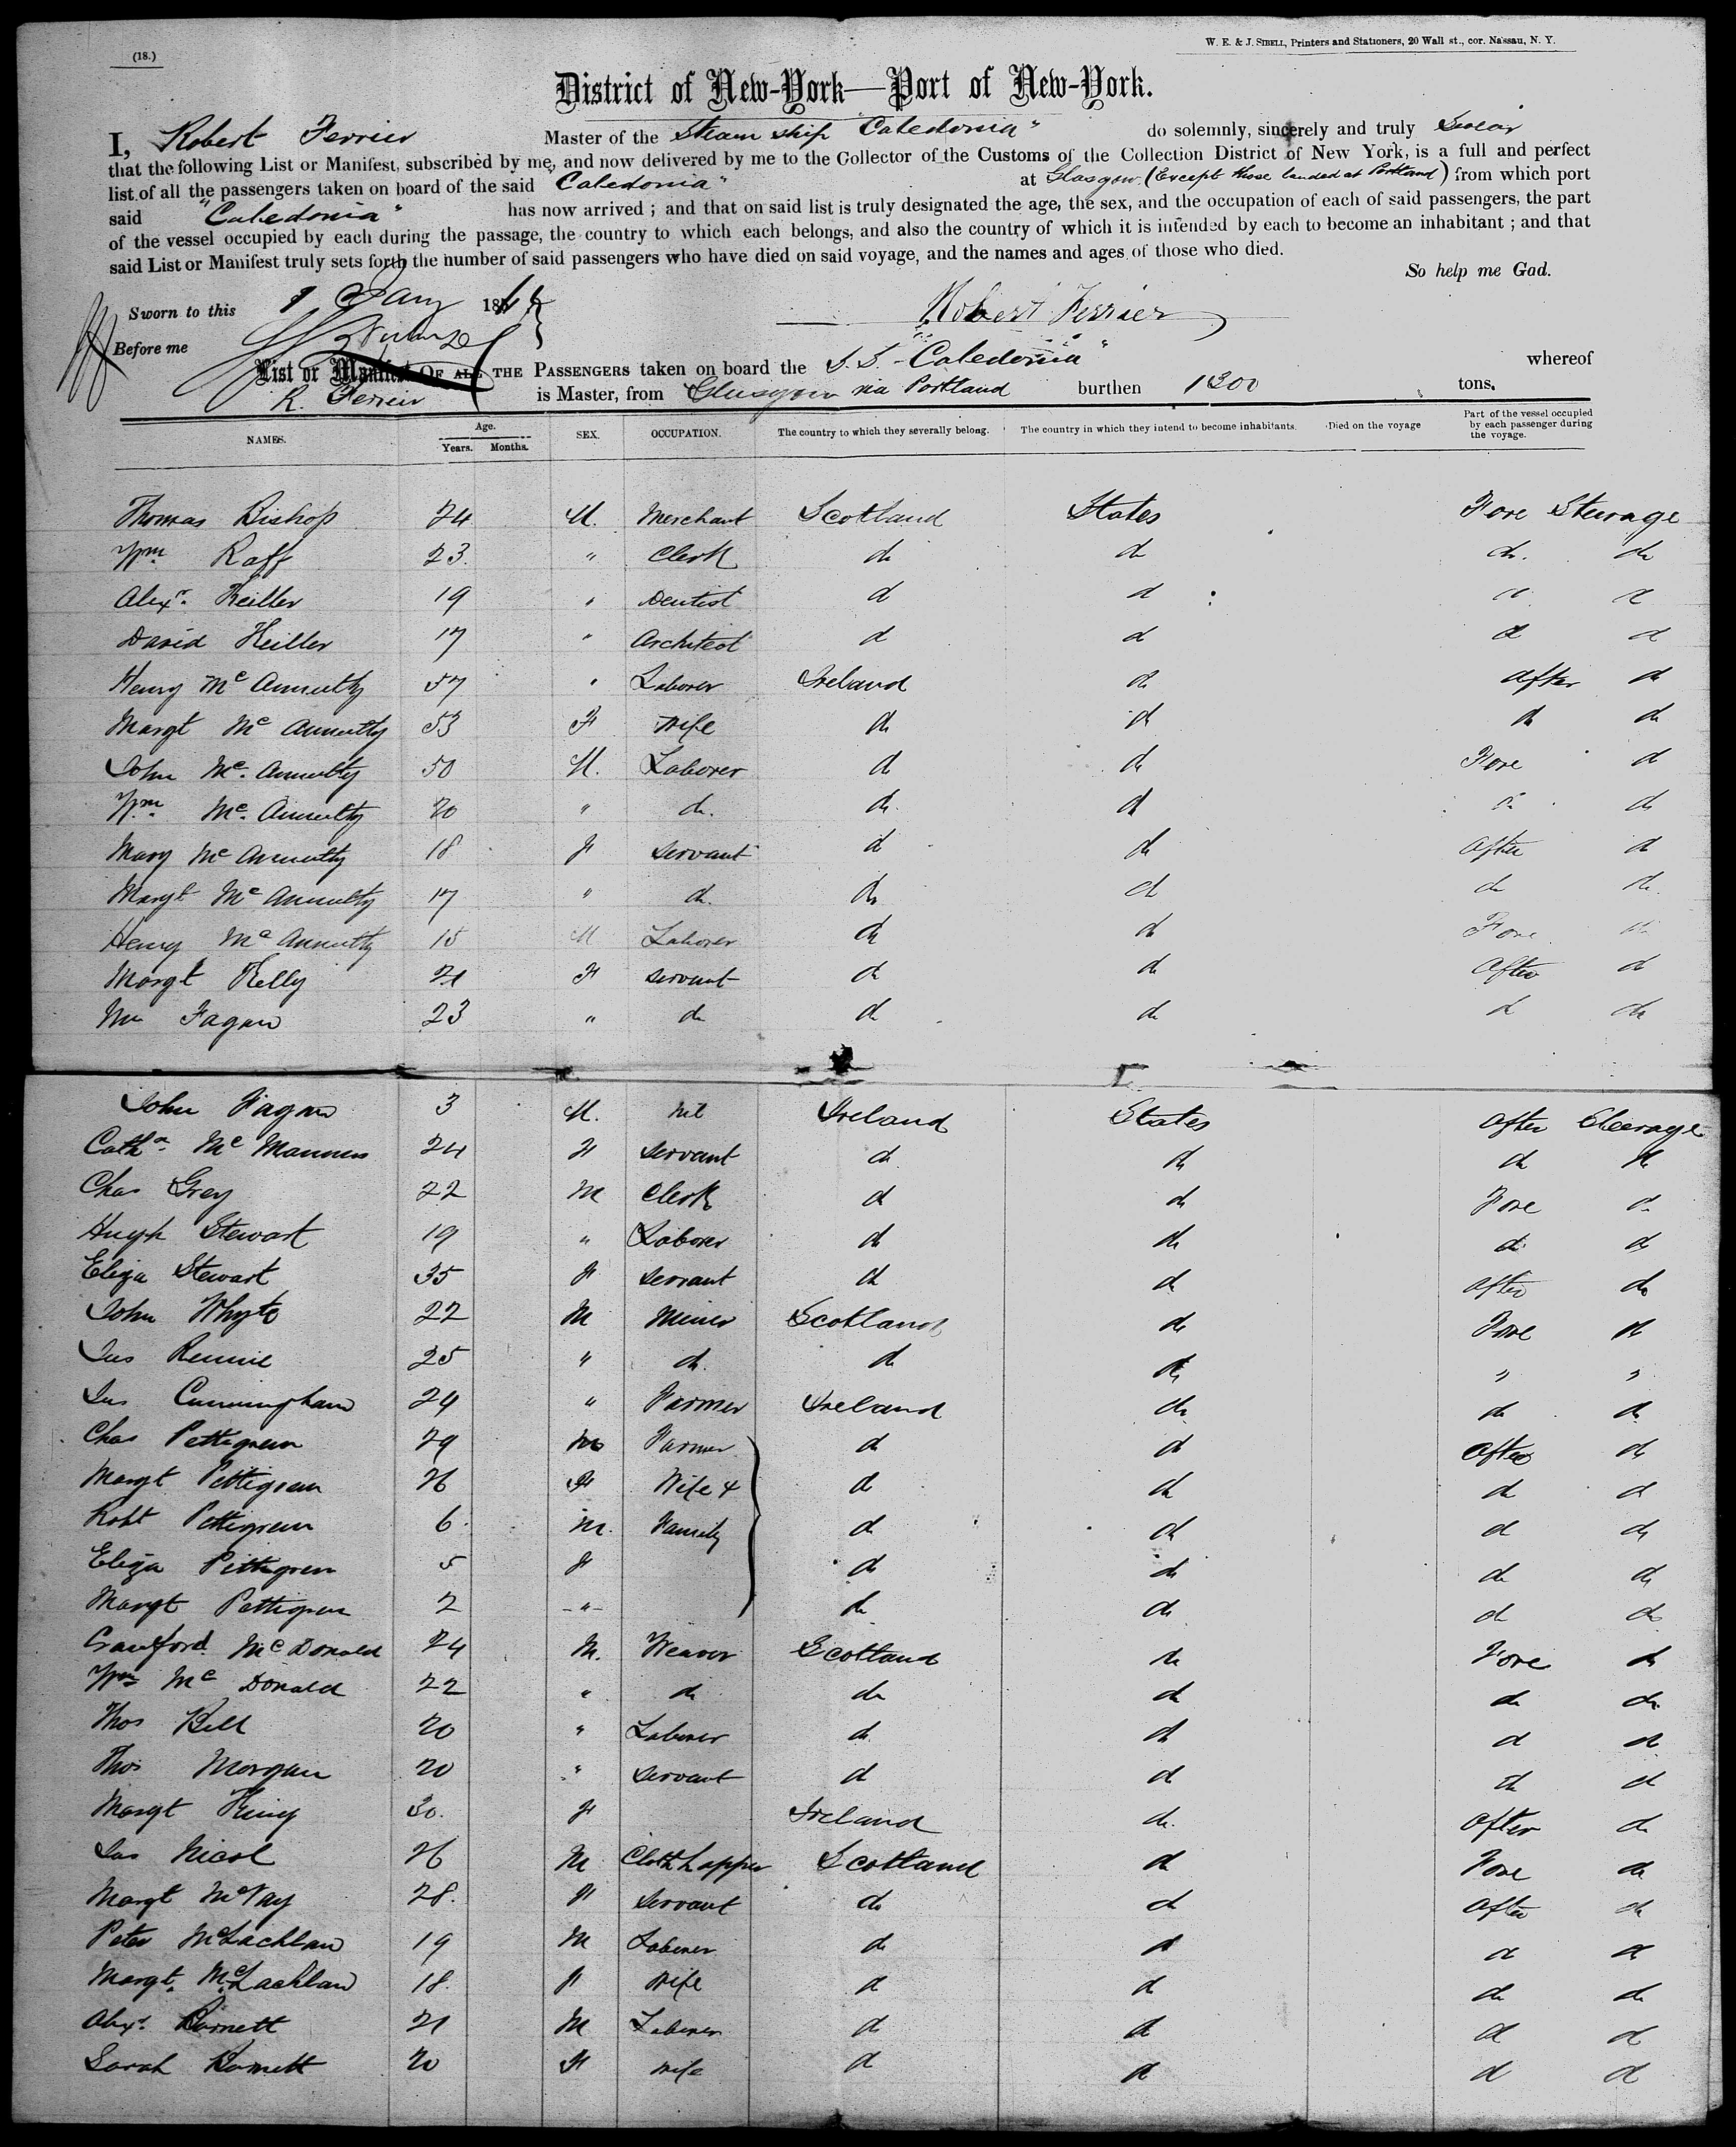 (18.)
W. E. & J. SIBELL, Printers and Stationers, 20 Wall st., cor. Nassau, N. Y.
District of New-York—Port of New-York.
I, Robert Ferrier Master of the Steam ship "Caledonia" do solemnly, sincerely and truly Swear
that the following List or Manifest, subscribed by me, and now delivered by me to the Collector of the Customs of the Collection District of New York, is a full and perfect
list of all the passengers taken on board of the said "Caledonia" at Glasgow (Except those landed at Portland) from which port
said "Caledonia" has now arrived ; and that on said list is truly designated the age, the sex, and the occupation of each of said passengers, the part
of the vessel occupied by each during the passage, the country to which each belongs, and also the country of which it is intended by each to become an inhabitant ; and that
said List or Manifest truly sets forth the number of said passengers who have died on said voyage, and the names and ages of those who died.
So help me God.
Sworn to this Jany 186
Robert Ferrier
Before me
List or Manifest OF ALL THE PASSENGERS taken on board the S.S. "Caledonia" whereof
R. Ferrier is Master, from Glasgow via Portland burthen 1300 tons.
NAMES. Age. Years. Months. SEX. OCCUPATION. The country to which they severally belong. The country in which they intend to become inhabitants. Died on the voyage Part of the vessel occupied by each passenger during the voyage.
Thomas Bishop 24 M. Merchant Scotland States Fore Steerage
Wm. Raff 23. " Clerk do do do. do
Alexr. Keiller 19 " Dentist do do do do
David Keiller 17 " Architect do do do do
Henry McAnnulty 57 " Laborer Ireland do After do
Margt McAnnulty 53 F Wife do do do do
John Mc.Annulty 50 M. Laborer do do Fore do
Wm. Mc.Annulty 20 " do. do. do do do
Mary McAnnulty 18 F Servant do do After do
Margt McAnnulty 17 " do. do do do do
Henry McAnnulty 15 M Laborer do do Fore do
Margt Kelly 21 F Servant do do After do
Fagan 23 " do do do do do
John Fagan 3 M. nil Ireland States After Steerage
Catha. McManners 24 F Servant do do do do
Chas Grey 22 M Clerk do do Fore do
Hugh Stewart 19 " Laborer do do do do
Eliza Stewart 35 F Servant do do After do
John Whyte 22 M Miner Scotland do Fore do
Jas Rennie 25 " do. do do " "
Jas Cunningham 24 " Farmer Ireland do do do
Chas Pettigrew 29 M Farmer do do After do
Margt Pettigrew 26 F Wife & do do do do
Robt Pettigrew 6 M. Family do do do do
Eliza Pettigrew 5 F do do do do
Margt Pettigrew 2 -"- do do do do
Crawford McDonald 24 M. Weaver Scotland do Fore do
Wm McDonald 22 " do do do do do
Thos Bell 20 " Laborer do do do do
Thos Morgan 20 " Servant do do do do
Margt King 30. F Ireland do. After do
Jas Nicol 26 M Cloth Lapper Scotland do Fore do
Margt McVay 28. F Servant do do After do
Peter McLachlan 19 M Laborer do do do do
Margt. McLachlan 18. F Wife do do do do
Alexr. Barnett 21 M Laborer do do do do
Sarah Barnett 20 F Wife do do do do